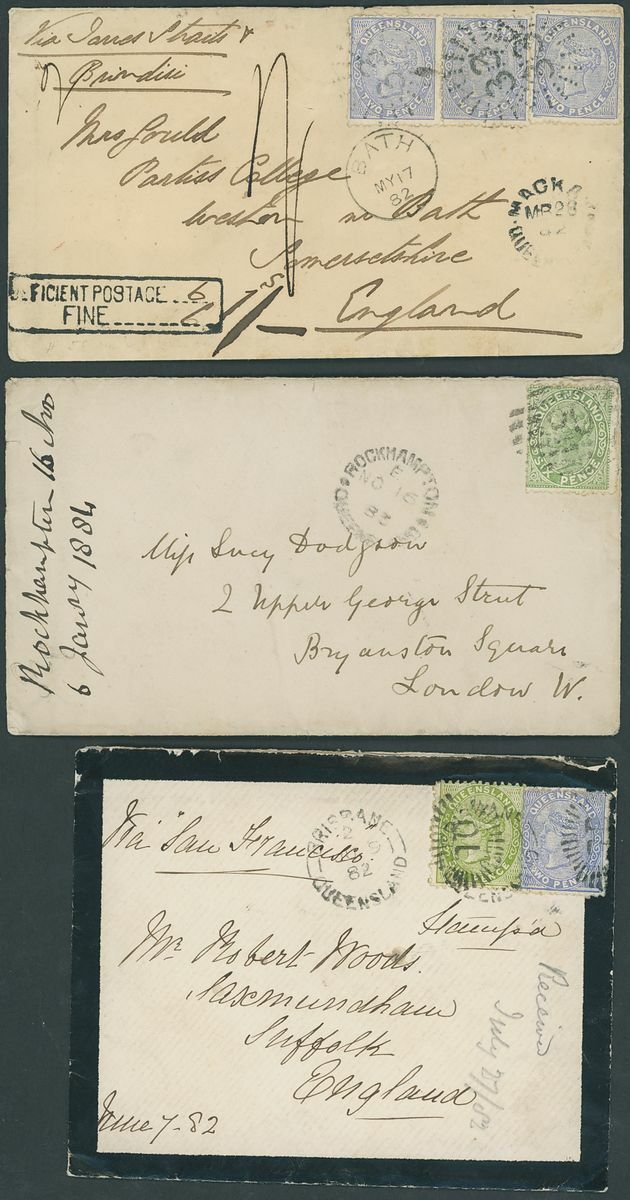 Via Torres Straits &
Brindisi
QUEENSLAND
TWO PENCE
QUEENSLAND
TWO PENCE
QUEENSLAND
TWO PENCE
Mrs Gould
Partiss College
Weston nr Bath
Somersetshire
England
BATH
MY 17
82
MACKAY
MR 28
82
DEFICIENT POSTAGE 6
FINE 6
1/-
Rockhampton 16 Nov
6 Janry 1884
QUEENSLAND
SIX PENCE
ROCKHAMPTON
E
NO 16
83
QUEENSLAND
Miss Lucy Dodgson
2 Upper George Street
Bryanston Square
London W.
Via "San Francisco"
BRISBANE
82
QUEENSLAND
QUEENSLAND
QUEENSLAND
TWO PENCE
Stamps
Mr Robert Woods
Saxmundham
Suffolk
England
June 7-82
Received
July 27/82